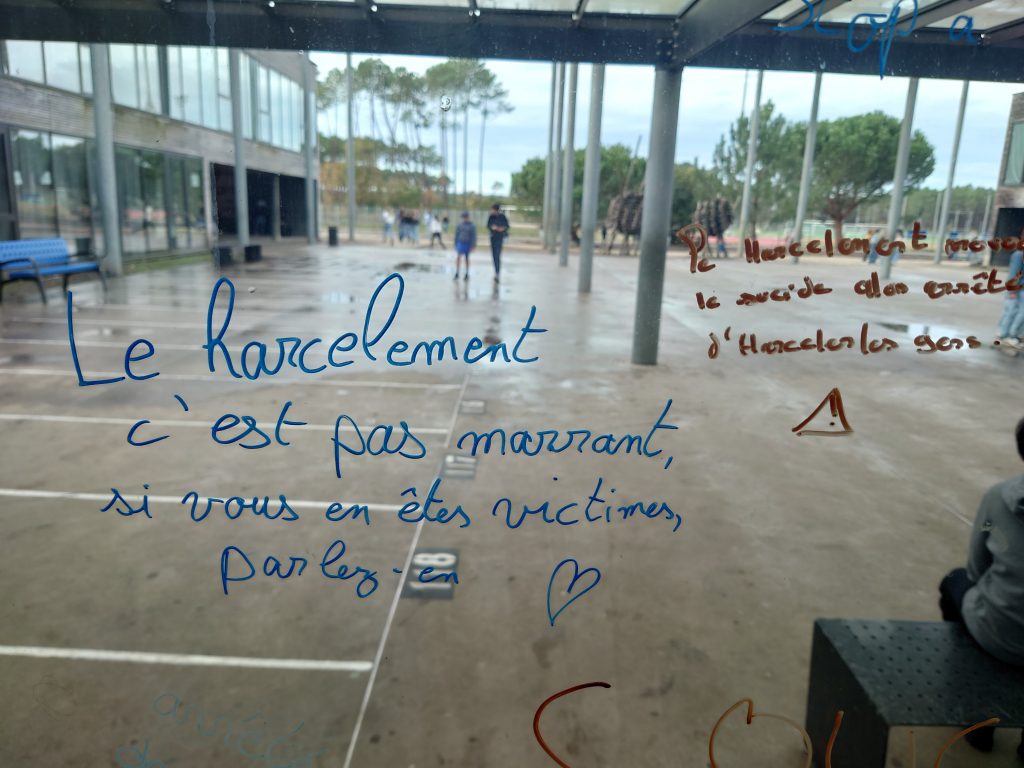 Stop a
Le harcelement
c'est pas marrant,
si vous en êtes victimes,
parlez-en
Harcelement
le suicide alors arrête
d'Harceler les gens.
18
17